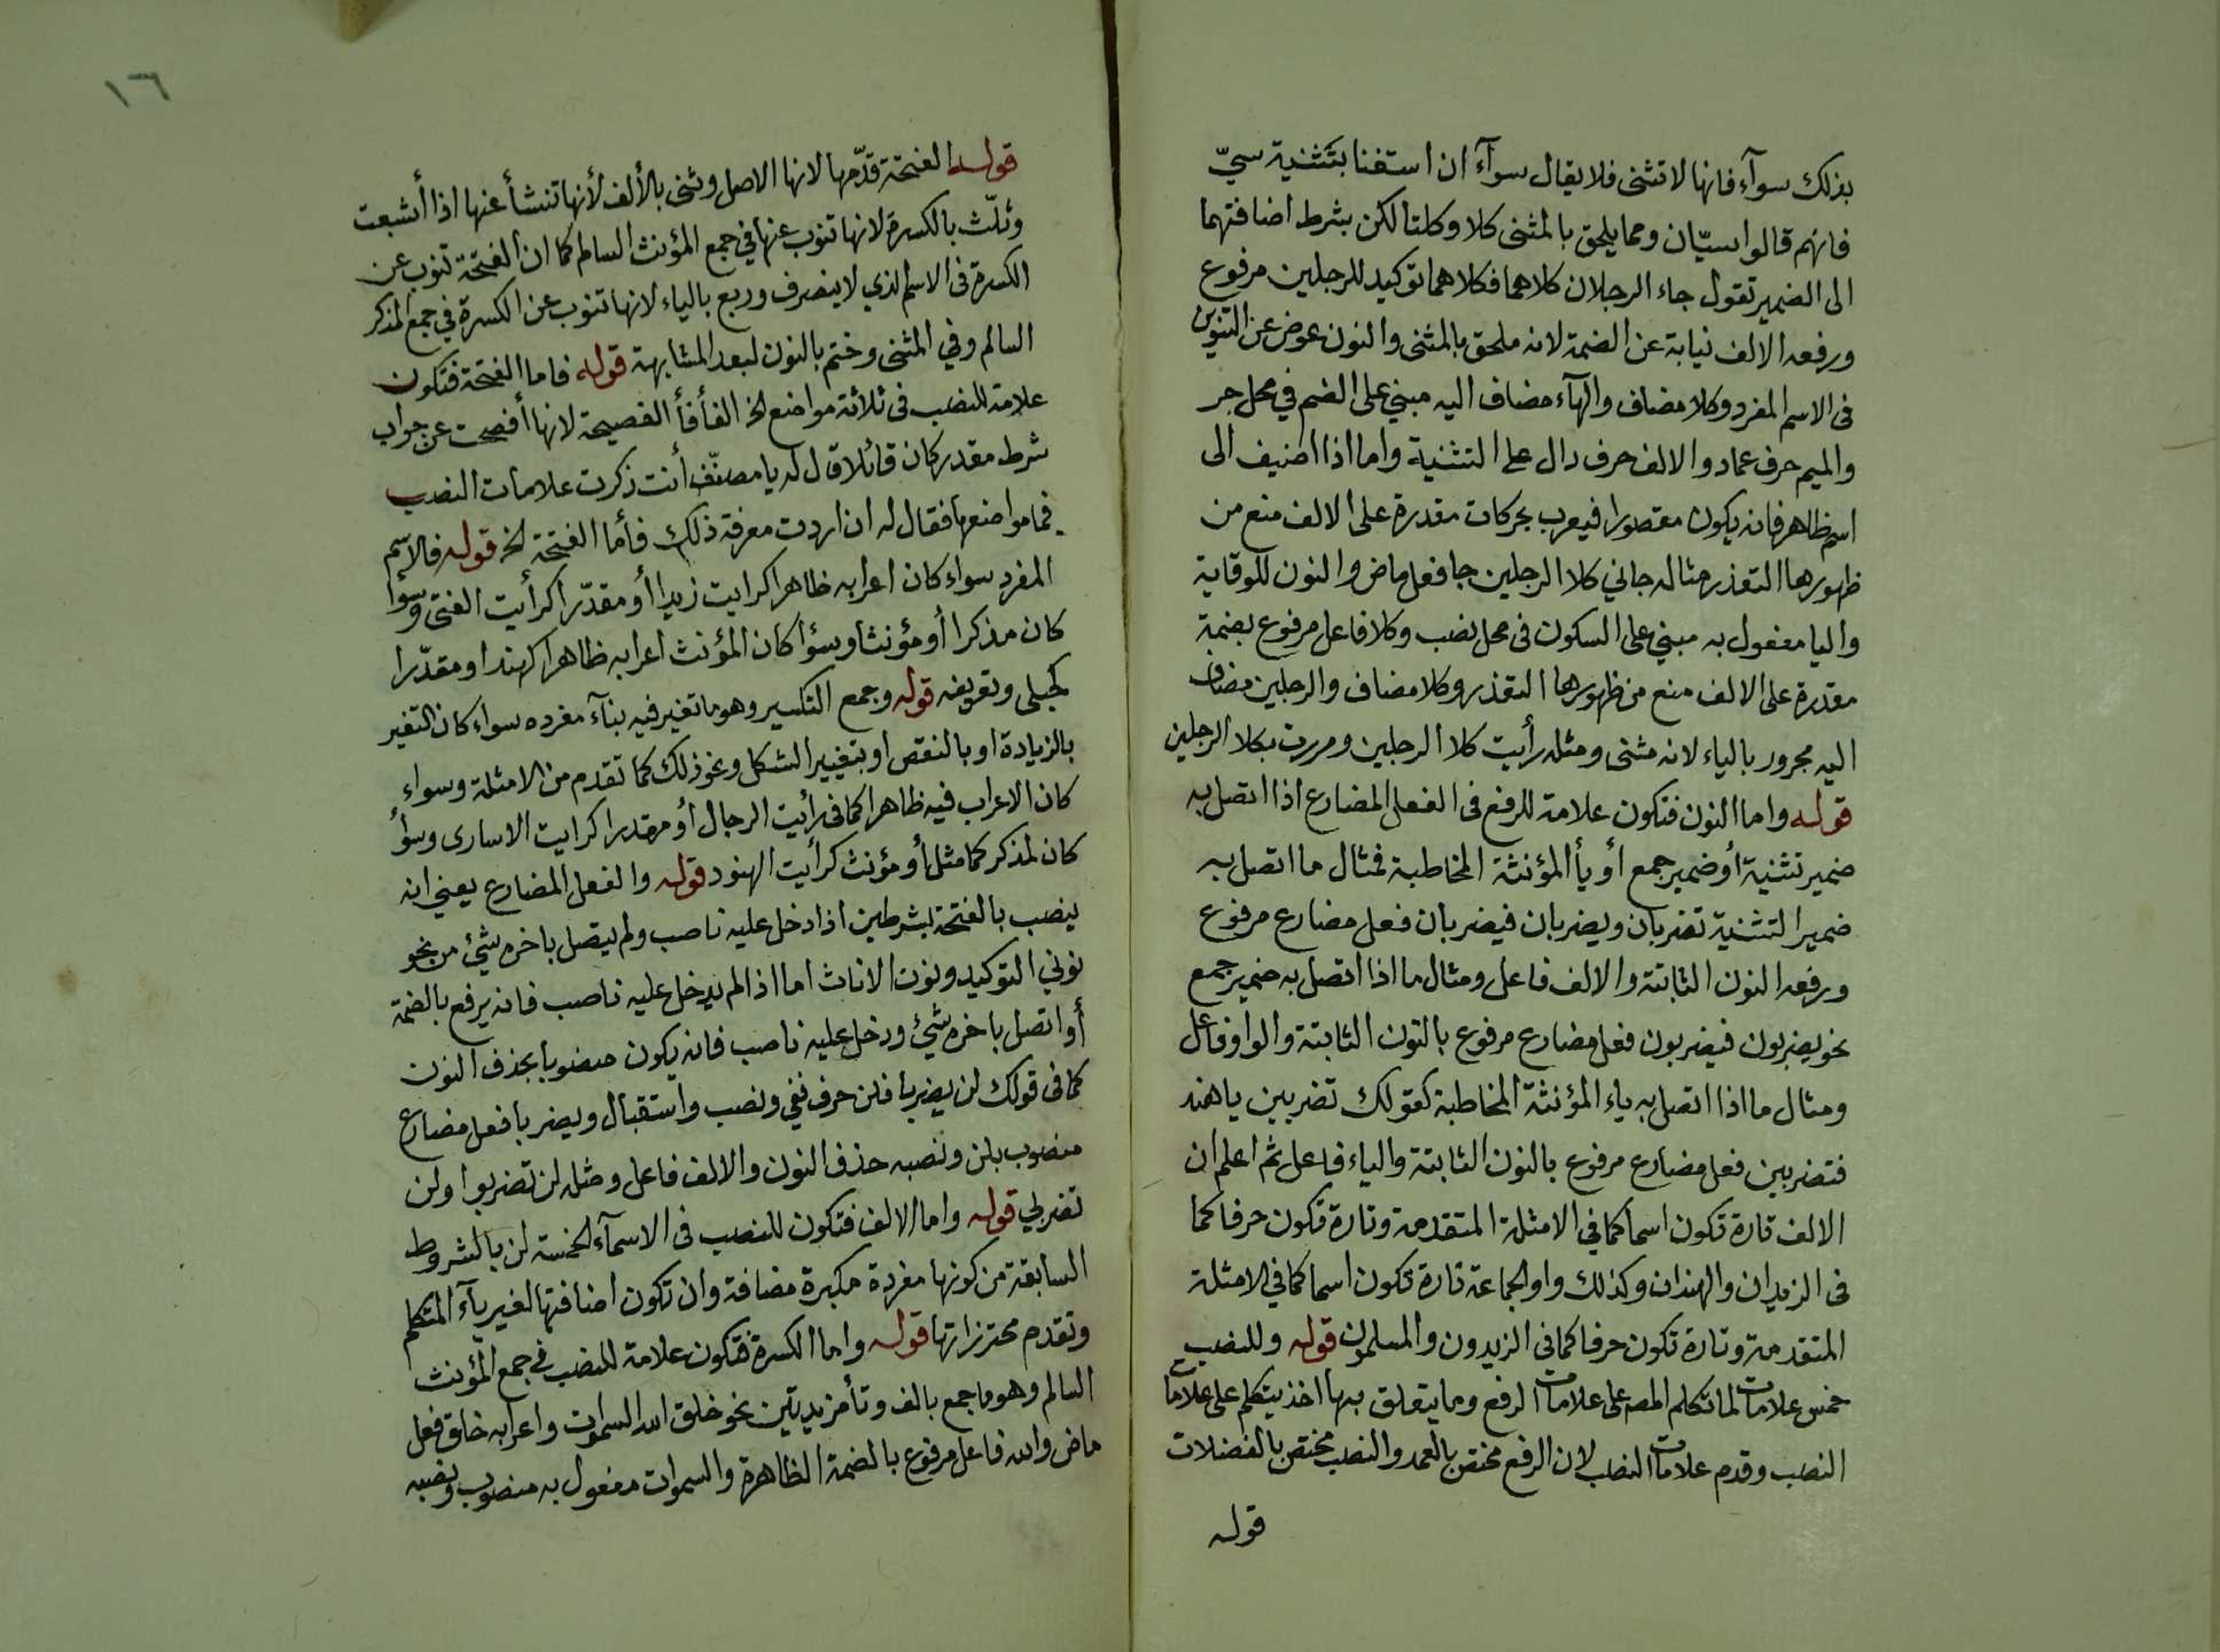 بذلك سوآء فانها لا تثنى فلا يقال سوآء ان استغنا بتثنية سيّ
فانهم قالوا سيّان ومما يلحق بالمثنى كلا وكلتا لكن بشرط اضافتهما
الى الضمير تقول جاء الرجلان كلاهما فكلاهما توكيد للرجلين مرفوع
ورفعه الالف نيابة عن الضمة لانه ملحق بالمثنى والنون عوض عن التنوين
فى الاسم المفرد وكلا مضاف والهآء مضاف اليه مبني على الضم في محل جر
والميم حرف عماد والالف حرف دال على التثنية واما اذا اضيف الى
اسم ظاهر فانه يكون مقصورا فيعرب بحركات مقدرة على الالف منع من
ظهورها التعذر مثاله جاني كلا الرجلين جا فعل ماض والنون للوقاية
واليا مفعول به مبني على السكون فى محل نصب وكلا فاعل مرفوع بضمة
مقدرة على الالف منع من ظهورها التعذر وكلا مضاف والرجلين مضاف
اليه مجرور بالياء لانه مثنى ومثله رأيت كلا الرجلين ومررت بكلا الرجلين
قوله واما النون فتكون علامة للرفع فى الفعل المضارع اذا اتصل به
ضمير تثنية أو ضمير جمع أو يأ المؤنثة المخاطبة فمثال ما اتصل به
ضمير التثنية تضربان ويضربان فيضربان فعل مضارع مرفوع
ورفعه النون الثابتة والالف فاعل ومثال ما اذا اتصل به ضمير جمع
نحو يضربون فيضربون فعل مضارع مرفوع بالنون الثابتة والواو فاعل
ومثال ما اذا اتصل به ياء المؤنثة المخاطبة كقولك تضربين ياهند
فتضربين فعل مضارع مرفوع بالنون الثابتة والياء فاعل ثم اعلم ان
الالف تارة تكون اسما كما في الامثلة المتقدمة وتارة تكون حرفا كما
فى الزيدان والهندان وكذلك واو الجماعة تارة تكون اسما كما في الامثلة
المتقدمة وتارة تكون حرفا كما فى الزيدون والمسلمون قوله وللنصب
خمس علامات لما تكلم المص على علامات الرفع وما يتعلق بها اخذ يتكلم على علامات
النصب وقدم علامات النصب لان الرفع مختص بالعمد والنصب مختص بالفضلات
قوله
١٦
قوله الفتحة قدّمها لانها الاصل وثنى بالألف لأنها تنشأ عنها اذا أشبعت
وثلّث بالكسرة لانها تنوب عنها في جمع المؤنث السالم كما ان الفتحة تنوب عن
الكسرة فى الاسم الذي لا ينصرف وربع بالياء لانها تنوب عن الكسرة في جمع المذكر
السالم وفي المثنى وختم بالنون لبعد المشابهة قوله فاما الفتحة فتكون
علامة للنصب فى ثلاثة مواضع الخ الفأ فأ الفصيحة لانها أفصحت عن جواب
شرط مقدر كان قائلا قال له يا مصنّف أنت ذكرت علامات النصب
فما مواضعها فقال له ان اردت معرفة ذلك فأما الفتحة الخ قوله فالاسم
المفرد سواء كان اعرابه ظاهرا كرايت زيدا أو مقدّرا كرأيت الفتى وسوأ
كان مذكرا أو مؤنثا وسوأ كان المؤنث اعرابه ظاهرا كهندا ومقدّرا
كحبلى وتعريفه قوله وجمع التكسير وهو ما تغير فيه بنآء مفرده سواء كان التغير
بالزيادة او بالنقص او بتغيير الشكل ونحو ذلك كما تقدم من الامثلة وسواء
كان الاعراب فيه ظاهرا كما فى رأيت الرجال أو مقدرا كرايت الاسارى وسوأ
كان لمذكر كما مثل أو مؤنث كرأيت الهنود قوله والفعل المضارع يعني انه
ينصب بالفتحة بشرطين اذا دخل عليه ناصب ولم يتصل باخره شيئ من نحو
نوني التوكيد ونون الاناث اما اذا لم يدخل عليه ناصب فانه يرفع بالضمة
أو اتصل باخره شيئ ودخل عليه ناصب فانه يكون منصوبا بحذف النون
كما فى قولك لن يضربا فلن حرف نفي ونصب واستقبال ويضربا فعل مضارع
منصوب بلن ونصبه حذف النون والالف فاعل ومثله لن تضربوا ولن
تضربي قوله واما الالف فتكون للنصب فى الاسمآء الخمسة لن بالشروط
السابقة من كونها مفردة مكبرة مضافة وان تكون اضافتها لغير يآء المتكلم
وتقدم محترزاتها قوله واما الكسرة فتكون علامة للنصب في جمع المؤنث
السالم وهو ما جمع بالف وتأ مزيدتين نحو خلق الله السموات واعرابه خلق فعل
ماض والله فاعل مرفوع بالضمة الظاهرة والسموات مفعول به منصوب ونصبه